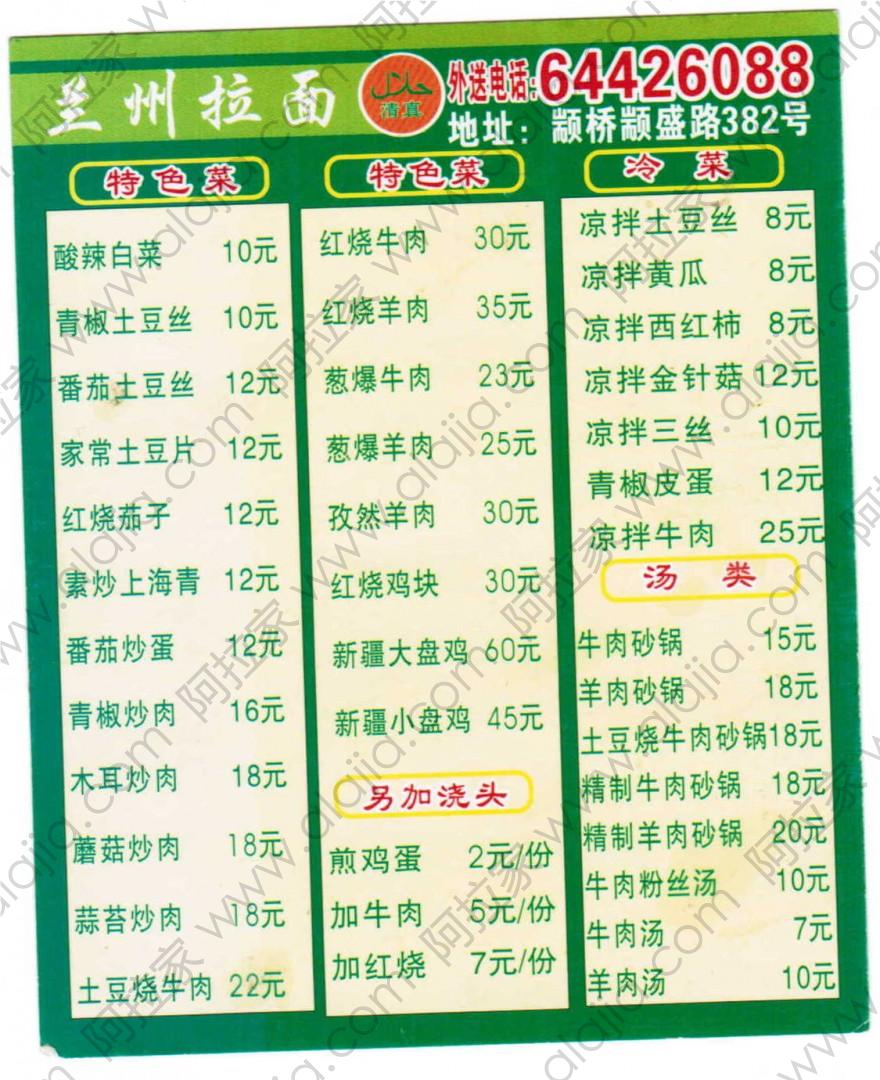 兰州拉面
حلال
清真
外送电话:64426088
地址：颛桥颛盛路382号
特色菜
酸辣白菜 10元
青椒土豆丝 10元
番茄土豆丝 12元
家常土豆片 12元
红烧茄子 12元
素炒上海青 12元
番茄炒蛋 12元
青椒炒肉 16元
木耳炒肉 18元
蘑菇炒肉 18元
蒜苔炒肉 18元
土豆烧牛肉 22元
特色菜
红烧牛肉 30元
红烧羊肉 35元
葱爆牛肉 23元
葱爆羊肉 25元
孜然羊肉 30元
红烧鸡块 30元
新疆大盘鸡 60元
新疆小盘鸡 45元
另加浇头
煎鸡蛋 2元/份
加牛肉 5元/份
加红烧 7元/份
冷菜
凉拌土豆丝 8元
凉拌黄瓜 8元
凉拌西红柿 8元
凉拌金针菇 12元
凉拌三丝 10元
青椒皮蛋 12元
凉拌牛肉 25元
汤类
牛肉砂锅 15元
羊肉砂锅 18元
土豆烧牛肉砂锅 18元
精制牛肉砂锅 18元
精制羊肉砂锅 20元
牛肉粉丝汤 10元
牛肉汤 7元
羊肉汤 10元
阿拉家 www.alajia.com